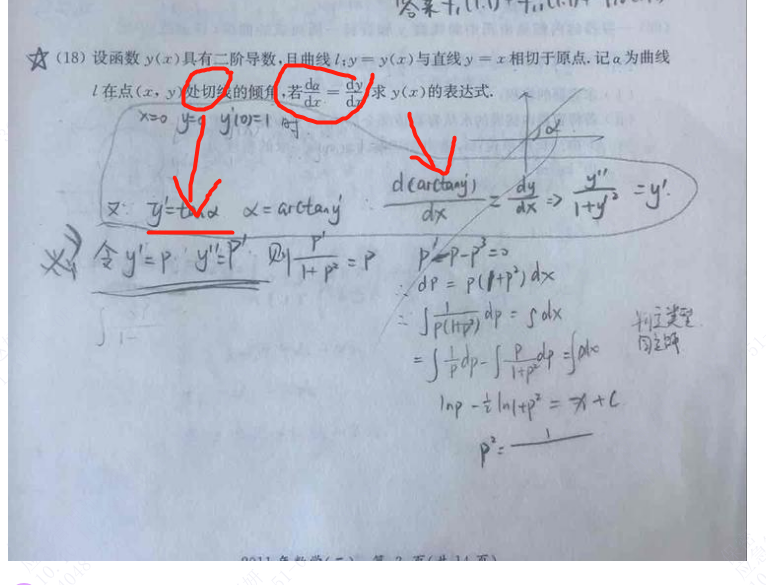 (18) 设函数 y(x)具有二阶导数,且曲线 l:y=y(x)与直线 y=x 相切于原点.记 α 为曲线
l 在点(x, y)处切线的倾角,若 dα/dx = dy/dx,求 y(x)的表达式.
x=0 y=0 y'(0)=1 时
α
又: y'=tanα α=arctany' ∴ d(arctany')/dx = dy/dx => y''/(1+y'²) = y'.
令 y'=p ∴ y''=p' 则 p'/(1+p²) = p
p'-p-p³=0
∴ dp = p(1+p²)dx
= ∫ 1/(p(1+p²)) dp = ∫dx
= ∫ 1/p dp - ∫ p/(1+p²) dp = ∫dx
lnp - ½ ln1+p² = x+C
p² = 1
2011 年数学(二) 第 3 页(共 14 页)